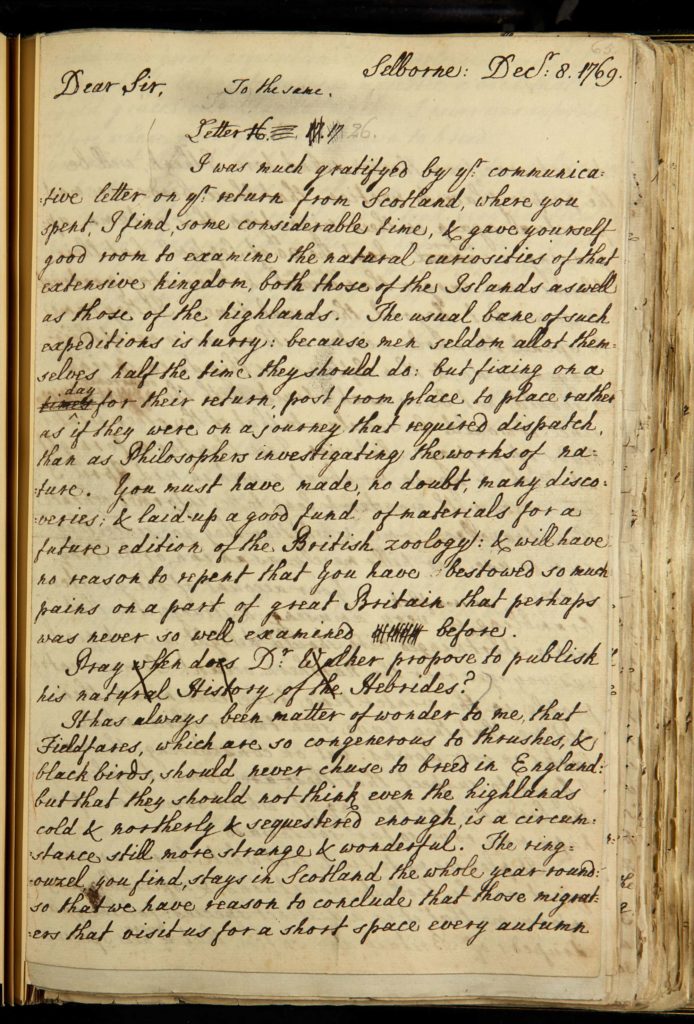 65
Selborne: Decr: 8. 1769.
Dear Sir,
To the same.
Letter 16. 17. 26.
I was much gratifyed by yr. communica:
:tive letter on yr. return from Scotland, where you
spent, I find, some considerable time, & gave yourself
good room to examine the natural curiosities of that
extensive kingdom, both those of the Islands as well
as those of the highlands. The usual bane of such
expeditions is hurry: because men seldom allot them:
selves half the time they should do: but fixing on a
day
times for their return, post from place to place rather
as if they were on a journey that required dispatch,
than as Philosophers investigating the works of na:
:ture. You must have made, no doubt, many disco:
:veries; & laid-up a good fund of materials for a
future edition of the British zoology: & will have
no reason to repent that You have bestowed so much
pains on a part of great Britain that perhaps
was never so well examined before.
Pray when does Dr. Walker propose to publish
his natural History of the Hebrides?
It has always been matter of wonder to me, that
Fieldfares, which are so congenerous to thrushes, &
black birds, should never chuse to breed in England:
but that they should not think even the highlands
cold & northerly & sequestered enough, is a circum:
:stance still more strange & wonderful. The ring=
=ouzel, you find, stays in Scotland the whole year round:
so that we have reason to conclude that those migrat:
:ers that visit us for a short space every autumn